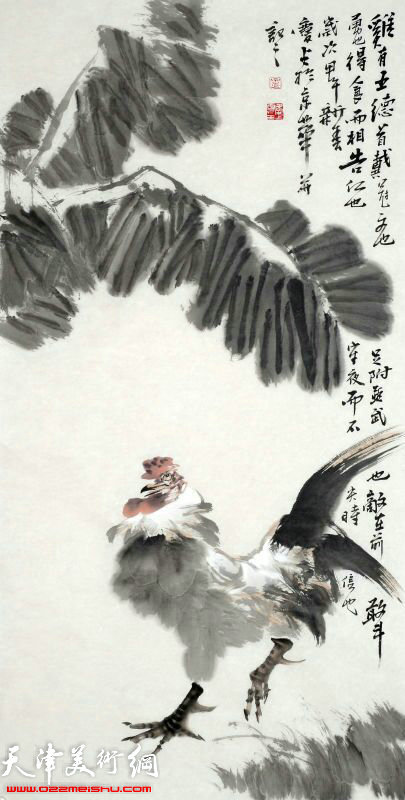 雞有五德首戴冠文也
足附距武也敵在前敢斗
勇也得食而相告仁也
守夜而不失時信也
歲次甲午新春
於京華并
記之
天津美術網
www.022meishu.com